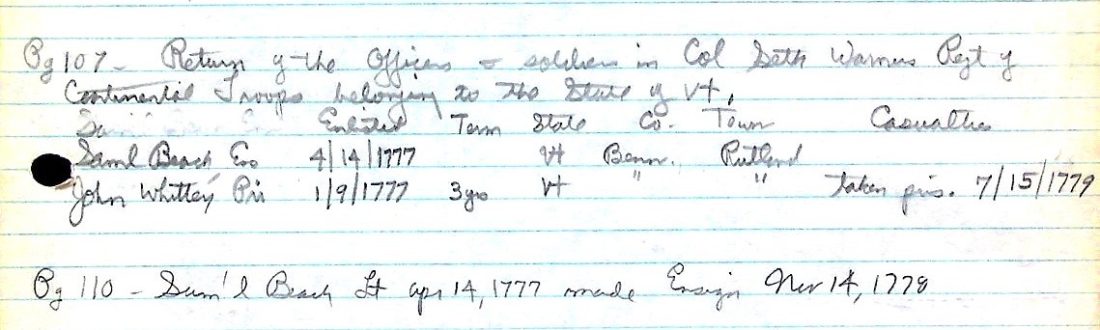 Pg 107 - Return of the Officers & soldiers in Col Seth Warners Regt of
Continental Troops belonging to the State of Vt,
Enlisted Term State Co. Town Casualties
Saml Beach Ens 4/14/1777 Vt Benn. Rutland
John Whitley Pri 1/9/1777 3 yrs Vt " " taken pris. 7/15/1779
Pg 110 - Sam'l Beach Lt apr 14, 1777 made Ensign Nov 14, 1778